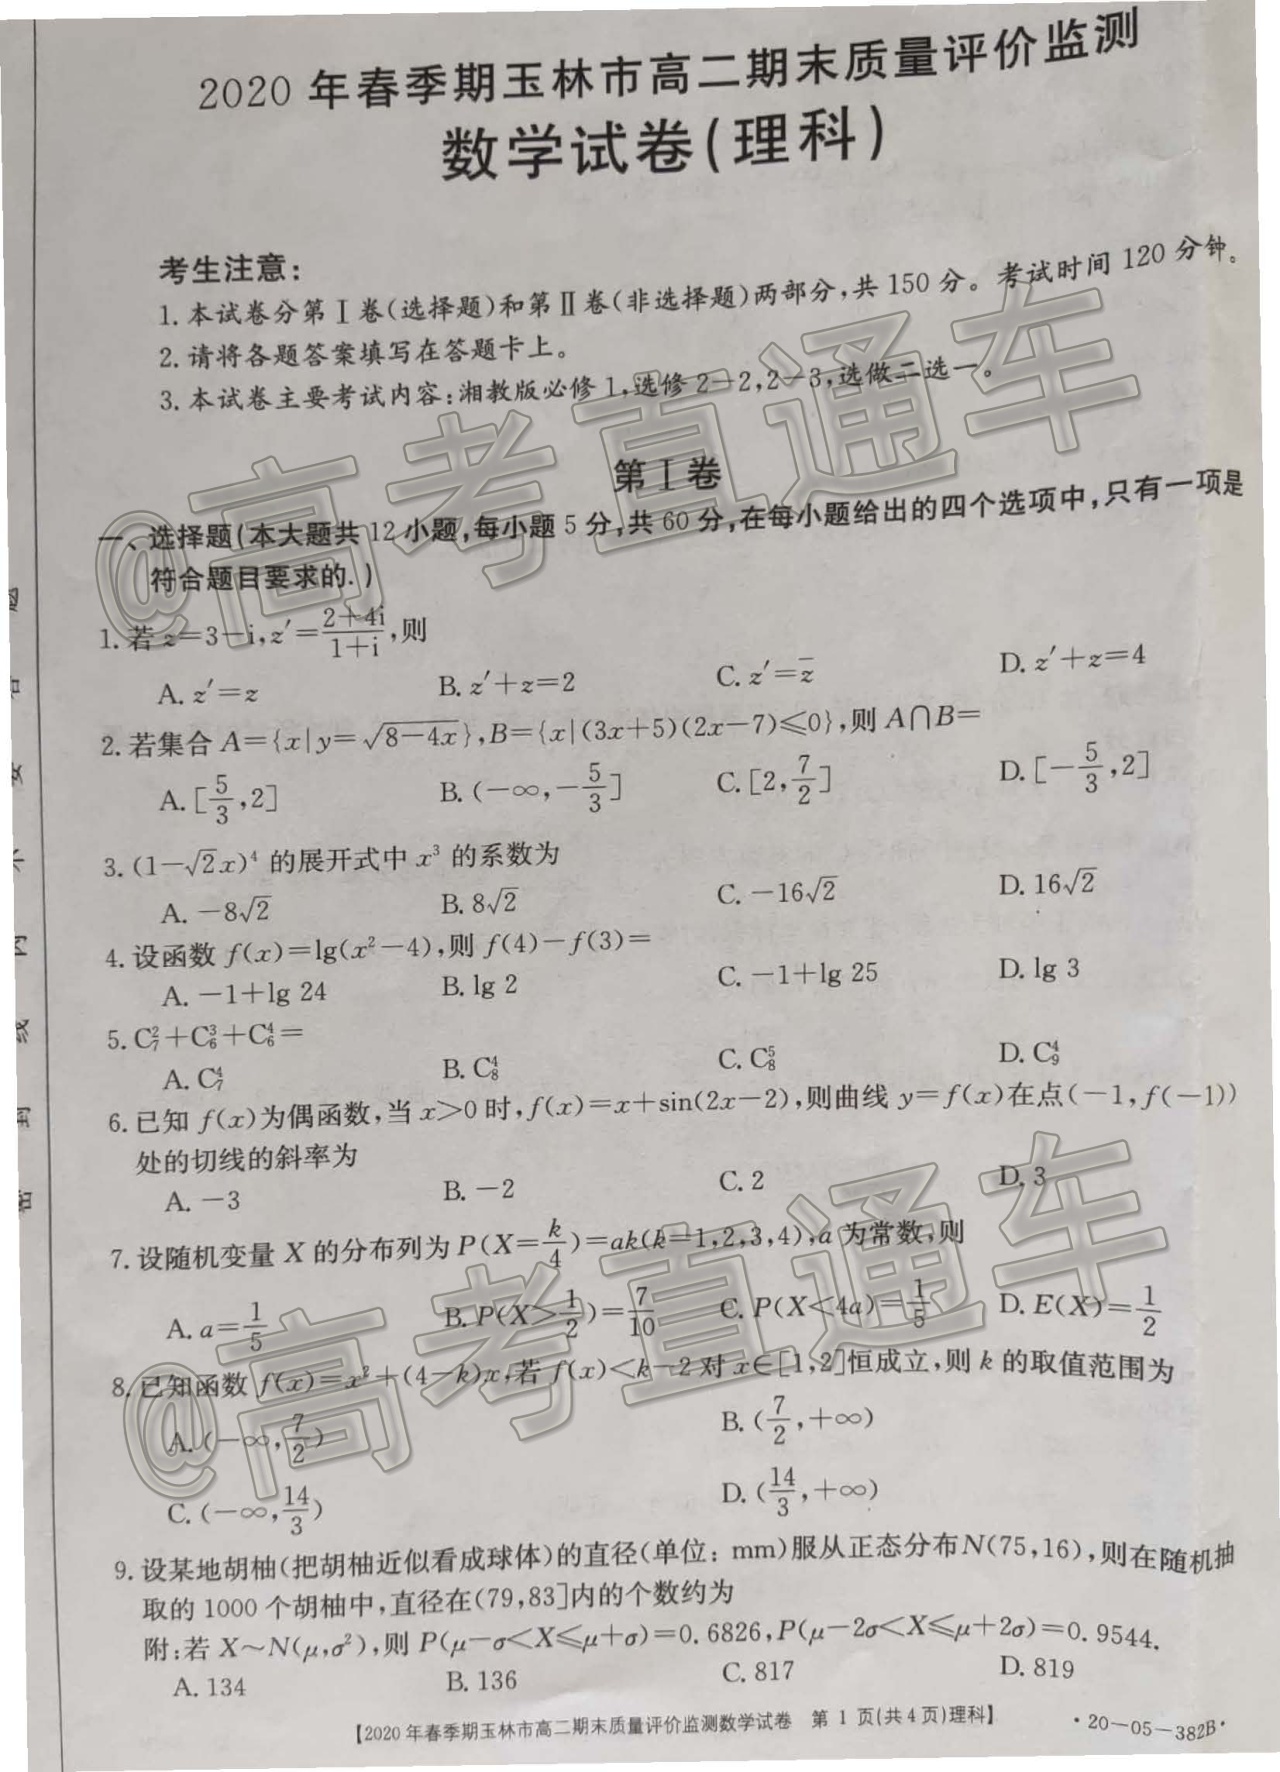 2020 年春季期玉林市高二期末质量评价监测
数学试卷(理科)
考生注意:
1.本试卷分第Ⅰ卷(选择题)和第Ⅱ卷(非选择题)两部分,共150分。考试时间120分钟。
2.请将各题答案填写在答题卡上。
3.本试卷主要考试内容:湘教版必修1,选修2-2,2-3,选做二选一。
第Ⅰ卷
一、选择题(本大题共12小题,每小题5分,共60分,在每小题给出的四个选项中,只有一项是
符合题目要求的.)
1.若 z=3-i,z′=(2+4i)/(1+i),则
A. z′=z B. z′+z=2 C. z′=z̅ D. z′+z=4
2.若集合 A={x|y=√(8-4x)},B={x|(3x+5)(2x-7)≤0},则 A∩B=
A. [5/3,2] B. (-∞,-5/3] C. [2,7/2] D. [-5/3,2]
3. (1-√2x)⁴ 的展开式中 x³ 的系数为
A. -8√2 B. 8√2 C. -16√2 D. 16√2
4.设函数 f(x)=lg(x²-4),则 f(4)-f(3)=
A. -1+lg 24 B. lg 2 C. -1+lg 25 D. lg 3
5. C₇²+C₆³+C₆⁴=
A. C₇⁴ B. C₈⁴ C. C₈⁵ D. C₉⁴
6.已知 f(x)为偶函数,当 x>0时,f(x)=x+sin(2x-2),则曲线 y=f(x)在点(-1,f(-1))
处的切线的斜率为
A. -3 B. -2 C. 2 D. 3
7.设随机变量 X 的分布列为 P(X=k/4)=ak(k=1,2,3,4),a 为常数,则
A. a=1/5 B. P(X>1/2)=7/10 C. P(X<4a)=1/5 D. E(X)=1/2
8.已知函数 f(x)=x²+(4-k)x,若 f(x)<k-2对 x∈[1,2]恒成立,则 k 的取值范围为
A. (-∞,7/2) B. (7/2,+∞)
C. (-∞,14/3) D. (14/3,+∞)
9.设某地胡柚(把胡柚近似看成球体)的直径(单位:mm)服从正态分布N(75,16),则在随机抽
取的1000个胡柚中,直径在(79,83]内的个数约为
附:若 X~N(μ,σ²),则 P(μ-σ<X≤μ+σ)=0.6826,P(μ-2σ<X≤μ+2σ)=0.9544.
A. 134 B. 136 C. 817 D. 819
【2020年春季期玉林市高二期末质量评价监测数学试卷 第 1 页(共4页)理科】 ·20-05-382B·
@高考直通车
@高考直通车